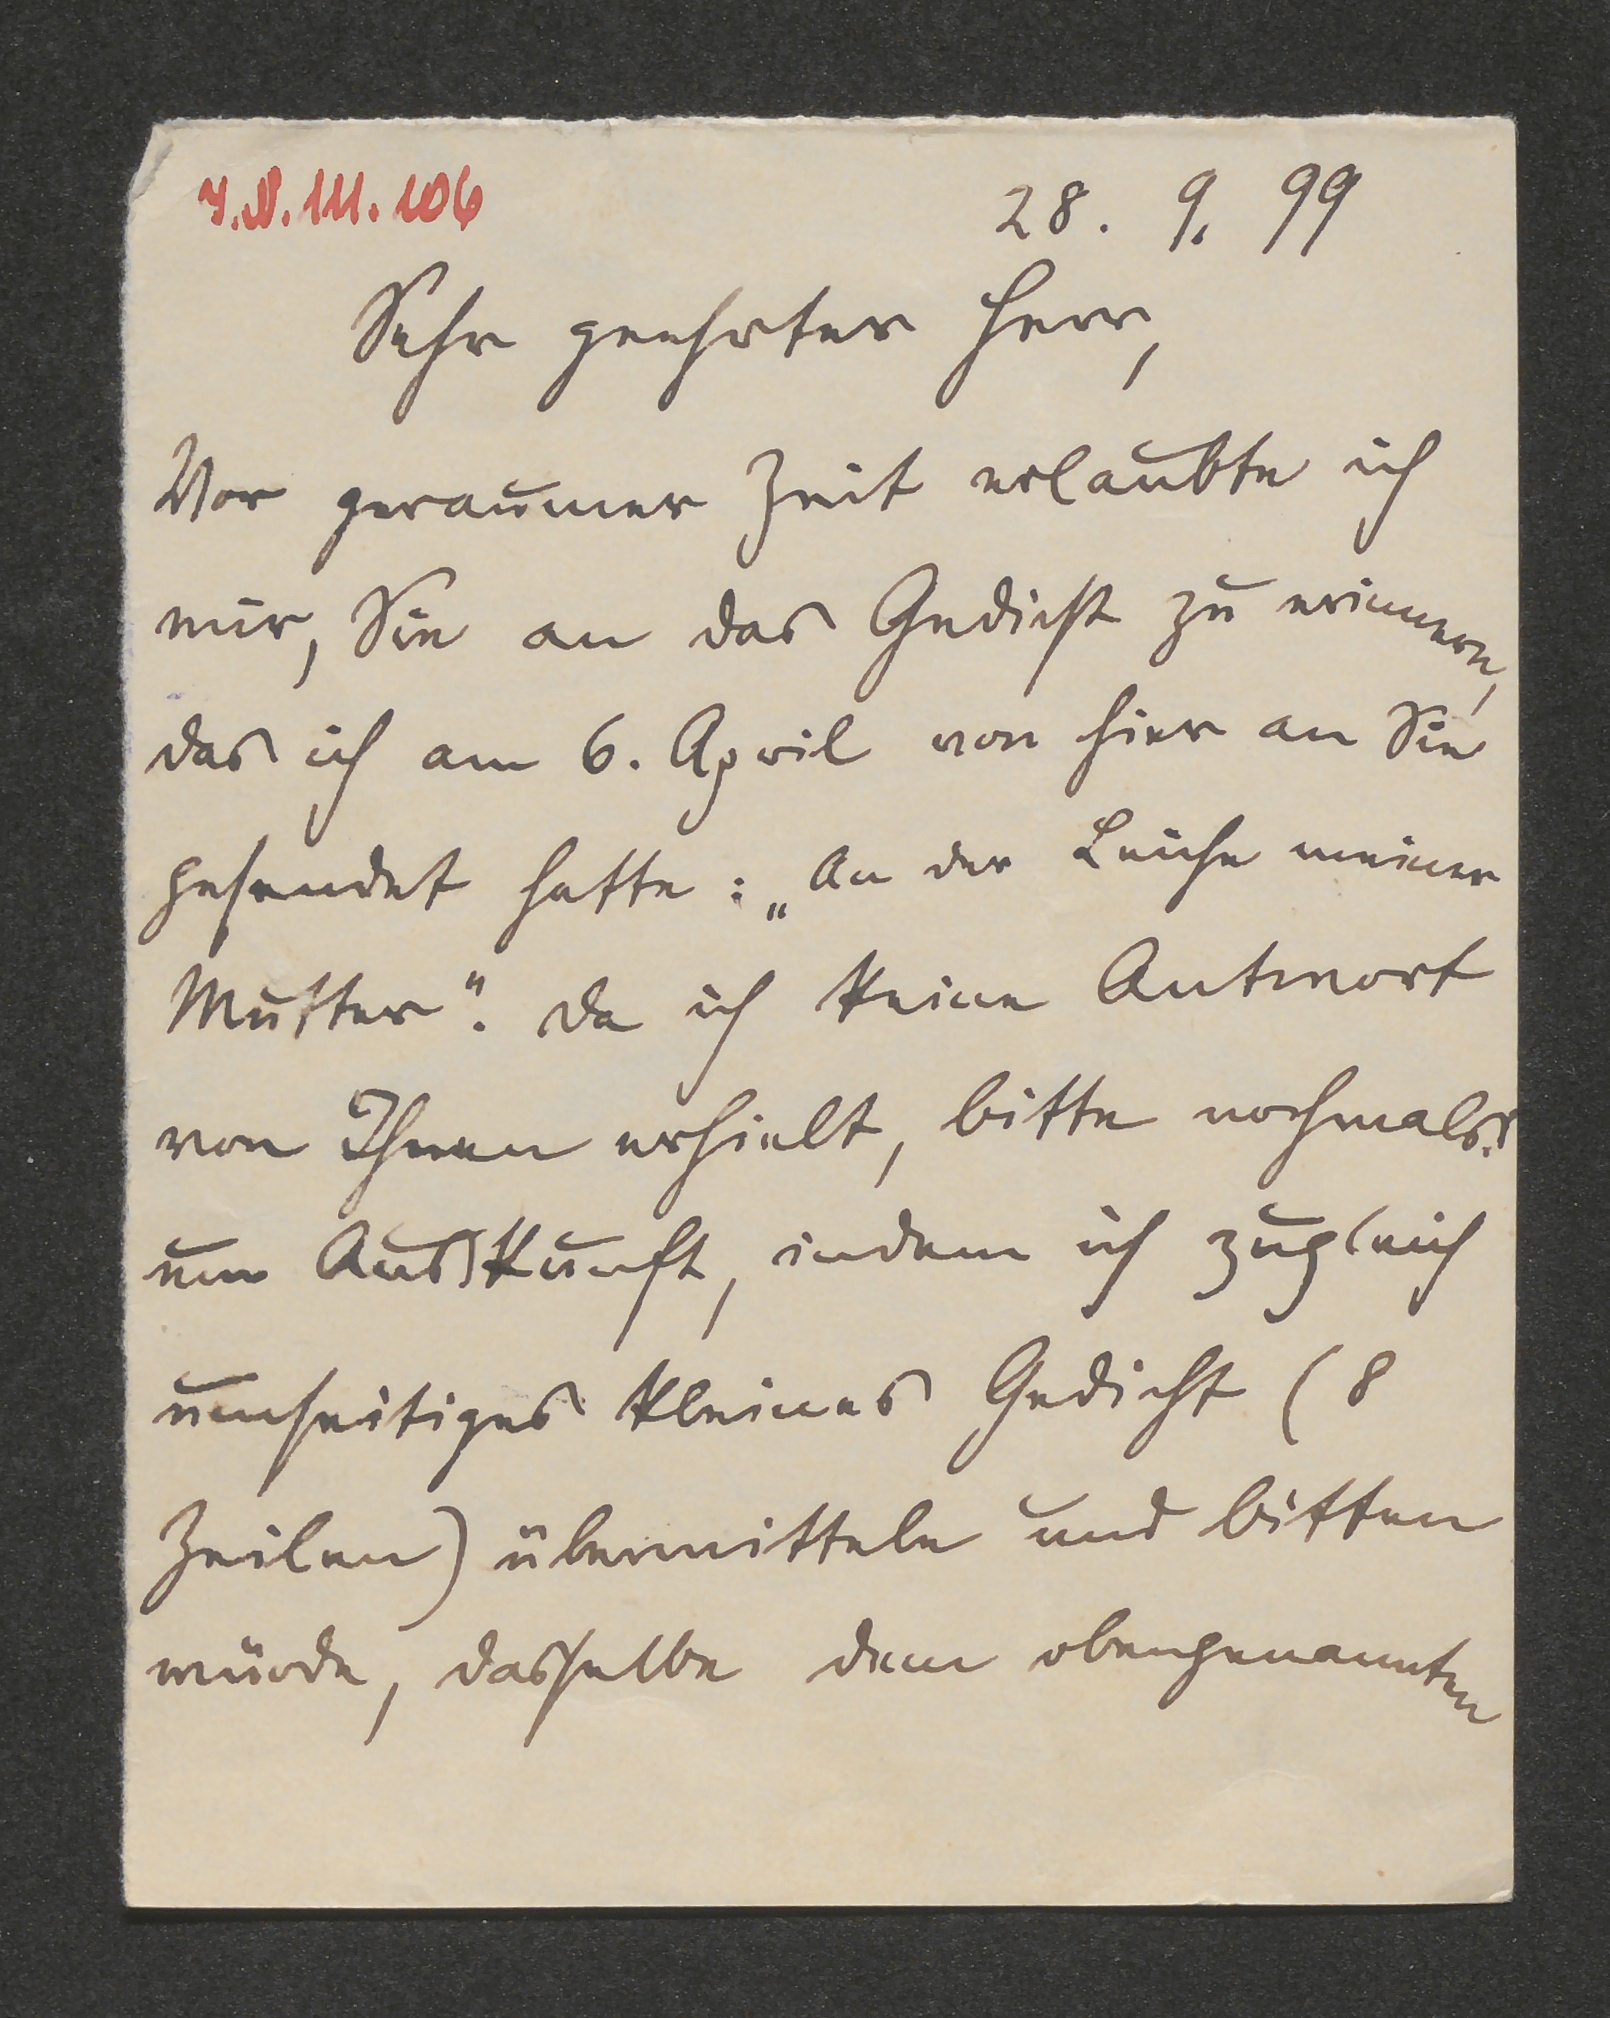 I.N. 111.106
28. 9. 99
Sehr geehrter Herr,
Vor geraumer Zeit erlaubte ich
mir, Sie an das Gedicht zu erinnern,
das ich am 6. April von hier an Sie
gesendet hatte: „An der Leiche meiner
Mutter“. Da ich keine Antwort
von Ihnen erhielt, bitte nochmals
um Auskunft, indem ich zugleich
umseitiges kleines Gedicht (8
Zeilen) übermittele und bitten
würde, dasselbe dem obengenannten